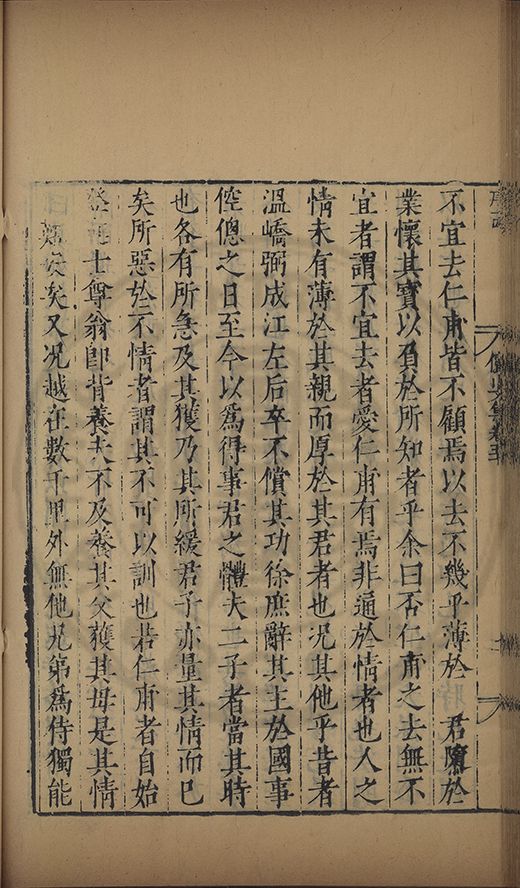 不宜去仁甫皆不顧焉以去不幾乎薄於 君隳於
業懷其寶以負於所知者乎余曰否仁甫之去無不
宜者謂不宜去者愛仁甫有焉非通於情者也人之
情未有薄於其親而厚於其君者也况其他乎昔者
溫嶠弼成江左后卒不償其功徐庶辭其主於國事
倥傯之日至今以爲得事君之體夫二子者當其時
也各有所急及其獲乃其所緩君子亦量其情而已
矣所惡於不情者謂其不可以訓也若仁甫者自始
士尊翁卽背養夫不及養其父獲其母是其情
安矣又况越在數千里外無他兄弟爲侍獨能